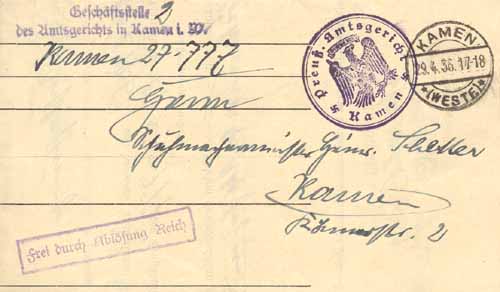 Geschäftsstelle 2
des Amtsgerichts in Kamen i. W.
Kamen 27.
Preuß. Amtsgericht
Kamen
KAMEN
29.4.36.17-18
(WESTF)
Herrn
Schuhmachermeister Heinr.
Kamen
Frei durch Ablösung Reich